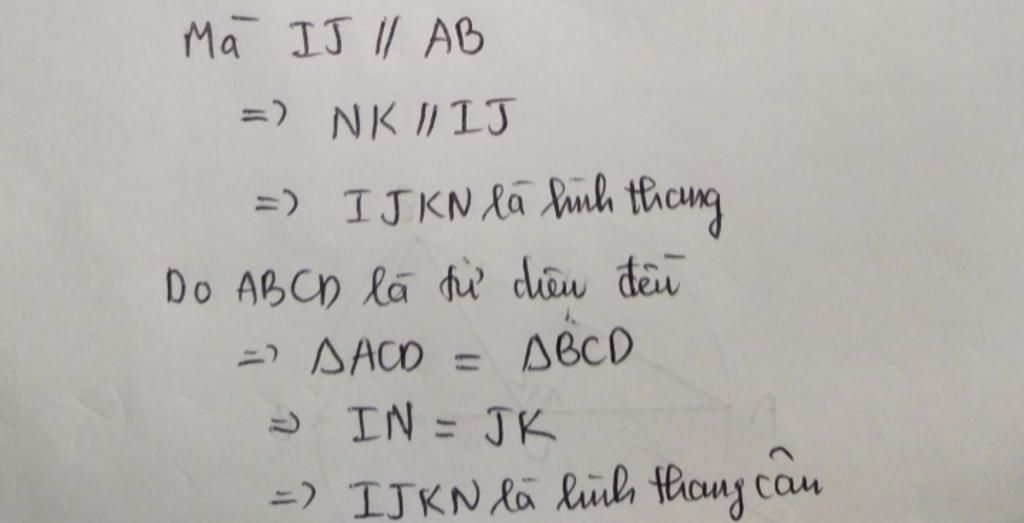 Mà IJ // AB
=> NK // IJ
=> IJKN là hình thang
Do ABCD là tứ diện đều
=> ΔACD = ΔBCD
=> IN = JK
=> IJKN là hình thang cân